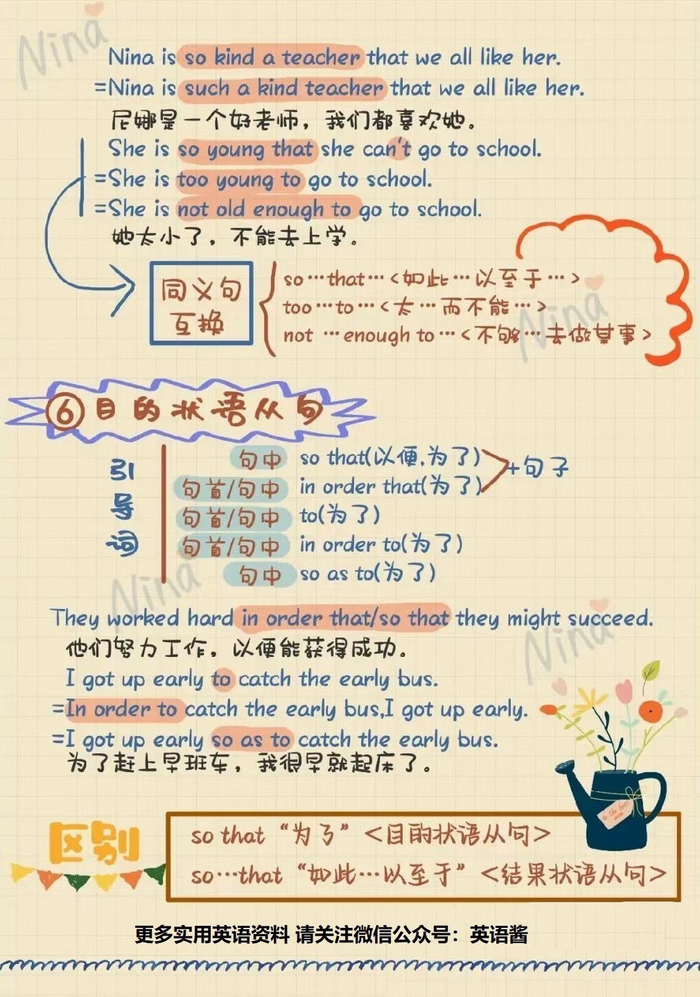 Nina
Nina is so kind a teacher that we all like her.
=Nina is such a kind teacher that we all like her.
尼娜是一个好老师，我们都喜欢她。
She is so young that she can't go to school.
=She is too young to go to school.
=She is not old enough to go to school.
她太小了，不能去上学。
同义句
互换
so…that…<如此…以至于…>
too…to…<太…而不能…>
not …enough to…<不够…去做某事>
Nina
⑥目的状语从句
引导词
句中 so that(以便,为了)
句首/句中 in order that(为了)
+句子
句首/句中 to(为了)
句首/句中 in order to(为了)
句中 so as to(为了)
Nina
They worked hard in order that/so that they might succeed.
Nina
他们努力工作，以便能获得成功。
I got up early to catch the early bus.
=In order to catch the early bus,I got up early.
=I got up early so as to catch the early bus.
为了赶上早班车，我很早就起床了。
区别
so that“为了”<目的状语从句>
so…that“如此…以至于”<结果状语从句>
更多实用英语资料 请关注微信公众号：英语酱